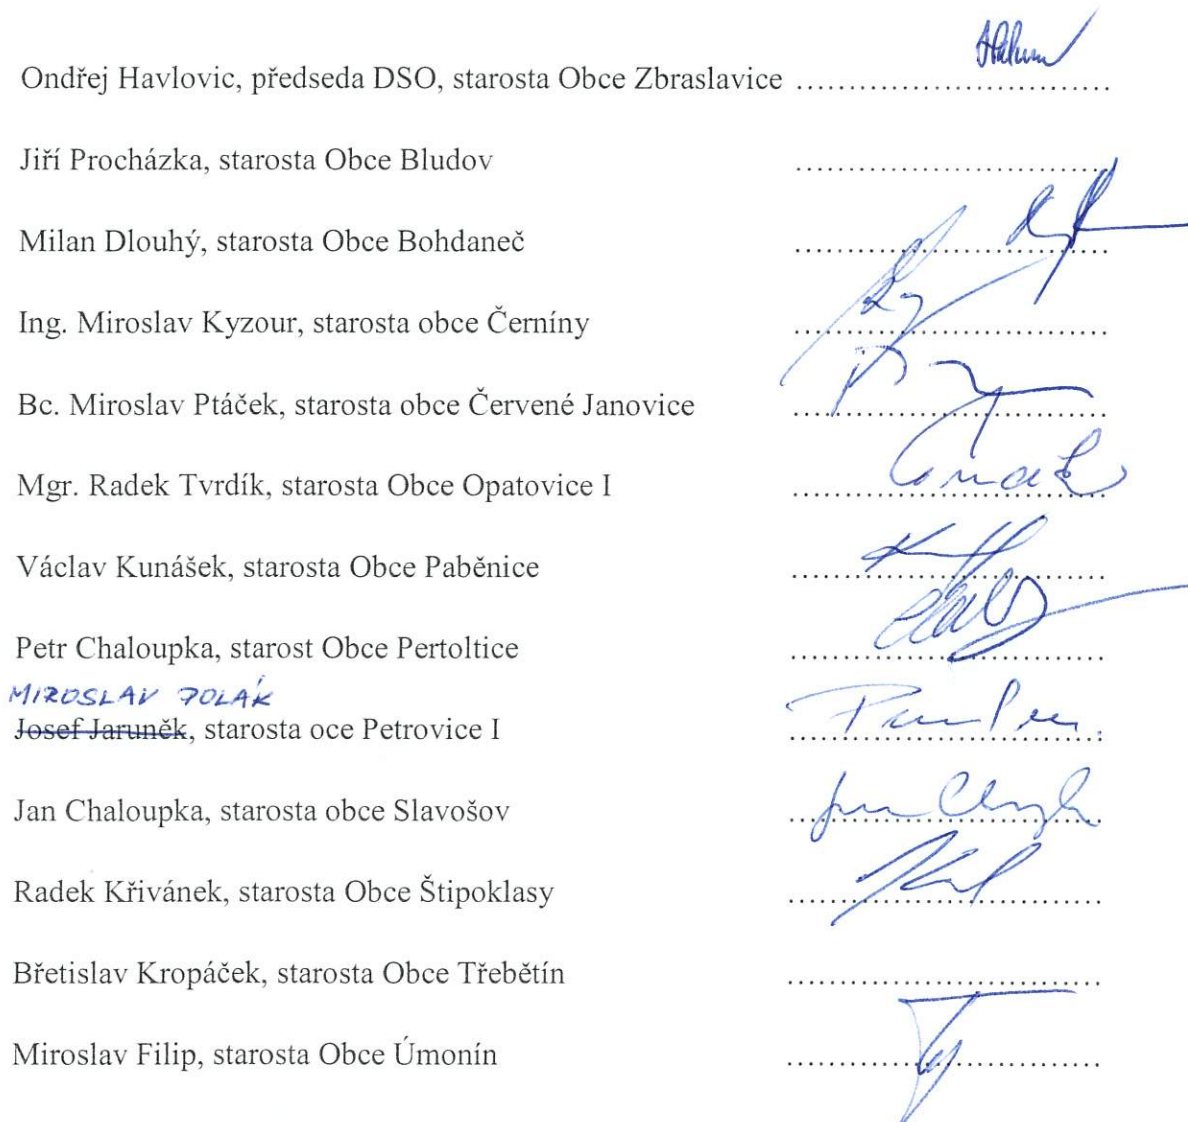 Ondřej Havlovic, předseda DSO, starosta Obce Zbraslavice ..............................
Jiří Procházka, starosta Obce Bludov ..............................
Milan Dlouhý, starosta Obce Bohdaneč ..............................
Ing. Miroslav Kyzour, starosta obce Černíny ..............................
Bc. Miroslav Ptáček, starosta obce Červené Janovice ..............................
Mgr. Radek Tvrdík, starosta Obce Opatovice I ..............................
Václav Kunášek, starosta Obce Paběnice ..............................
Petr Chaloupka, starost Obce Pertoltice ..............................
MIROSLAV POLÁK
Josef Jaruněk, starosta oce Petrovice I ..............................
Jan Chaloupka, starosta obce Slavošov ..............................
Radek Křivánek, starosta Obce Štipoklasy ..............................
Břetislav Kropáček, starosta Obce Třebětín ..............................
Miroslav Filip, starosta Obce Úmonín ..............................